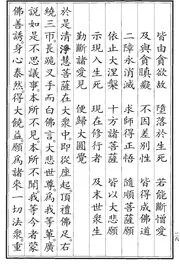 皆由貪欲故　墮落於生死　若能斷憎愛
及與貪瞋癡　不因差別性　皆得成佛道
二障永消滅　求師得正悟　隨順菩薩願
依止大涅槃　十方諸菩薩　皆以大悲願
示現入生死　現在修行者　及末世眾生
勤斷諸愛見　便歸大圓覺
於是清淨慧菩薩在大眾中即從座起頂禮佛足右
繞三帀長跪叉手而白佛言大悲世尊為我等輩廣
說如是不思議事本所不見本所不聞我等今者蒙
佛善誘身心泰然得大饒益願為諸來一切法眾重